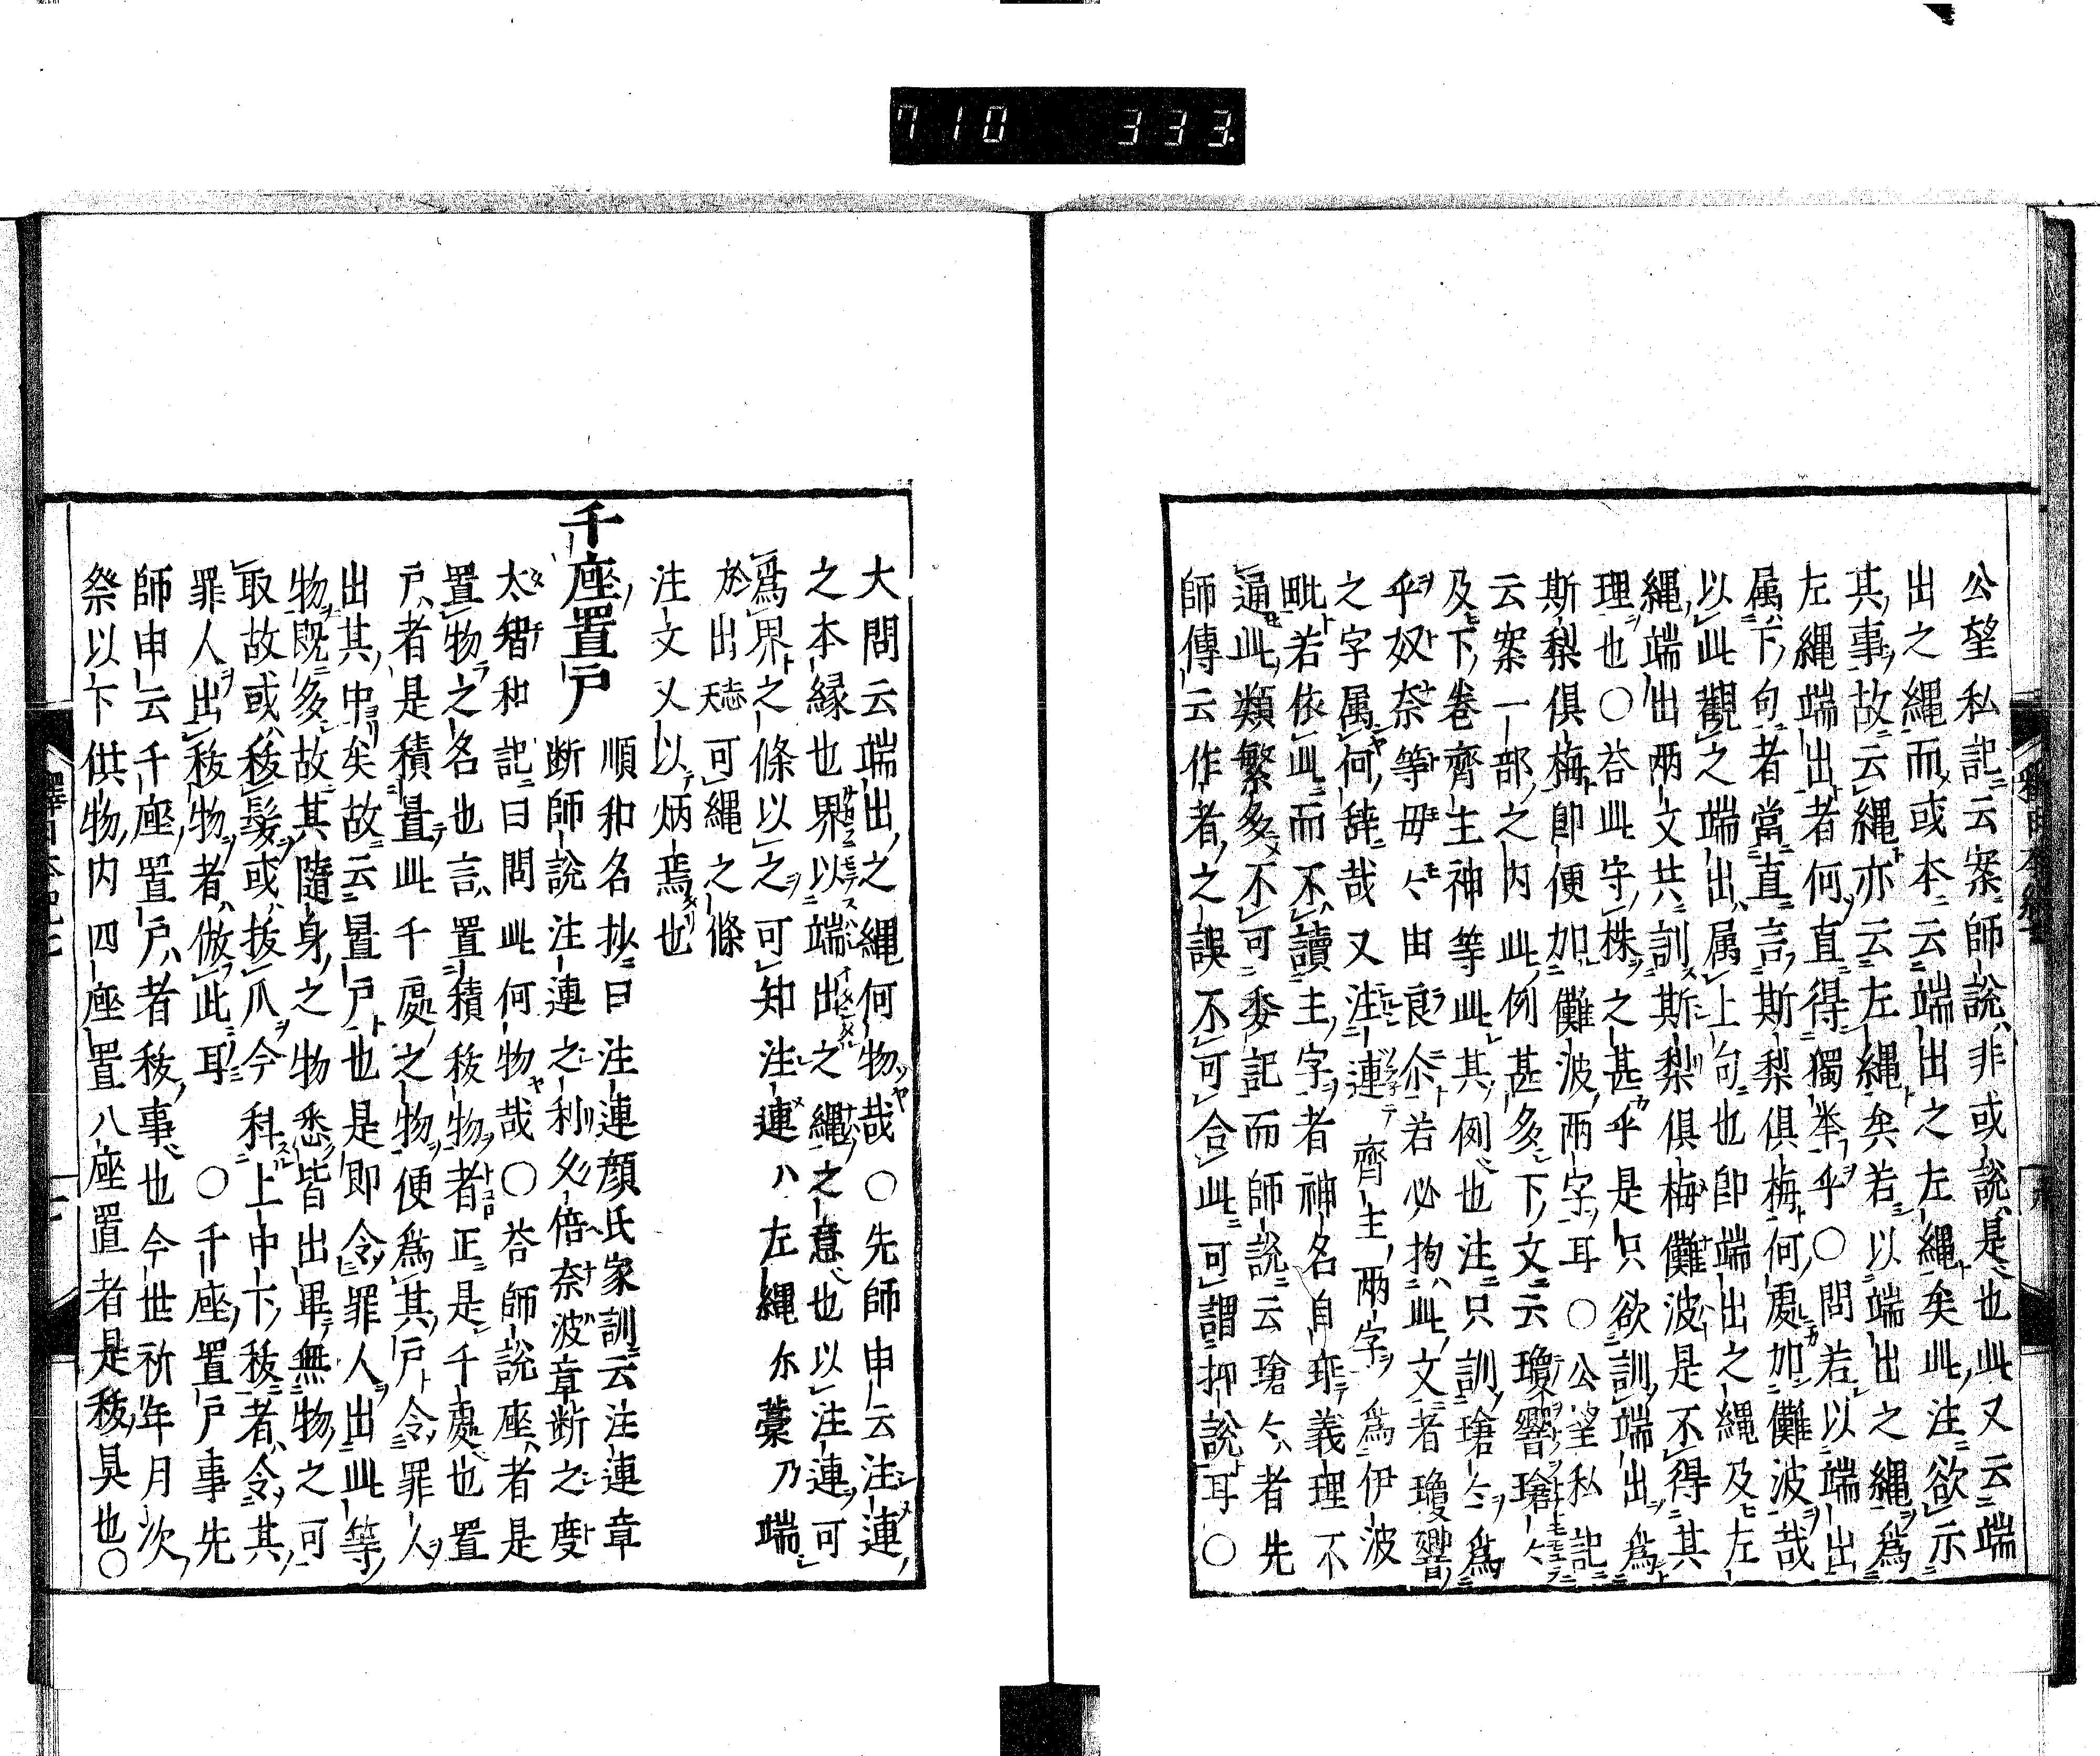 710 333
公望私記云案師說非或說是也此又云端
出之縄而或本云端出之左縄矣此注欲示
其事故云縄亦云左縄矣若以端出之縄爲
左縄端出者何直得獨举乎○問若以端出
属下句者當直言斯梨俱梅何處加儺波哉
以此觀之端出属上句也即端出之縄及左
縄端出兩文共訓斯梨俱梅儺波是不得其
理也○荅此守株之甚乎是只欲訓端出爲
斯梨俱梅即便加儺波兩字耳○公望私記
云案一部之内此例甚多下文云瓊響瑲々
及下卷齊主神等此其例也注只訓瑲々爲
乎奴奈等毋々由良尒若必拘此文者瓊響
之字属何辞哉又注連齊主兩字爲伊波
毗若依此而不讀主字者神名自乖義理不
通此類繁多不可委記而師說云瑲々者先
師傳云作者之誤不可合此可謂抑說耳○
大問云端出之縄何物哉○先師申云注連
之本縁也界以端出之縄之意也以注連可
爲界之條以之可知注連ハ左縄尓藁乃端
於出天志可縄之條
注文乂以炳焉也
千座置戸
順和名抄曰注連顔氏家訓云注連章
断師說注連之利久倍奈波章断之度
太智和記曰問此何物哉○荅師說座者是
置物之名也言置積秡物者正是千處也置
戸者是積置此千處之物便爲其戸令罪人
出其中矣故云置戸也是即令罪人出此等
物既多故其隨身之物悉皆出畢無物之可
取故或秡髮或抜爪今科上中下秡者令其
罪人出秡物者倣此耳○千座置戸事先
師申云千座置戸者秡事也今世祈年月次
祭以下供物内四座置八座置者是秡具也○